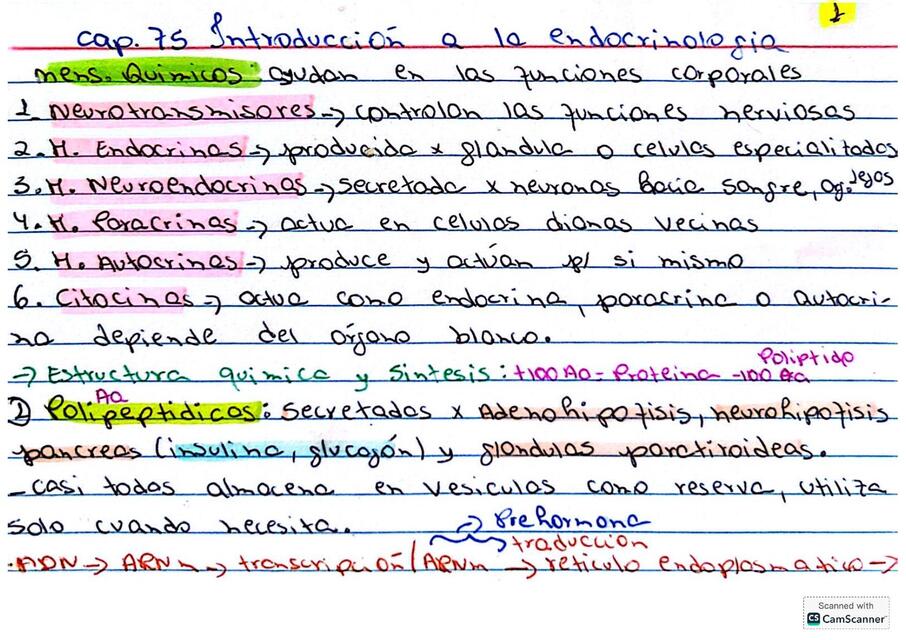 1
cap. 75 Introducción a la endocrinologia
mens. Quimicos: ayudan en las funciones corporales
1 Neurotransmisores → controlan las funciones nerviosas
2. H. Endocrinas → producida x glandula o celulas especialitados
3. H. Neuroendocrinas → secretada x neuronas hacia sangre, og. lejos
4. H. Paracrinas → actua en celulas dianas vecinas
5. H. Autocrinas → produce y actúan p/ si mismo
6. Citocinas → actua como endocrina, paracrina o autocri-
na depiende del órgano blanco.
Poliptido
→ Estructura quimica y Sintesis: +100 Aa = Proteina -100 Aa
Aa
1) Polipeptidicos: secretados x Adenohipofisis, neurohipofisis
pancreas (insulina, glucagón) y glandulas paratiroideas.
- casi todas almacena en vesiculas como reserva, utiliza
solo cuando necesita.
→ Prehormona
→ traducción
· ADN → ARNm → transcripción / ARNm → reticulo endoplasmatico →
Scanned with
CS CamScanner